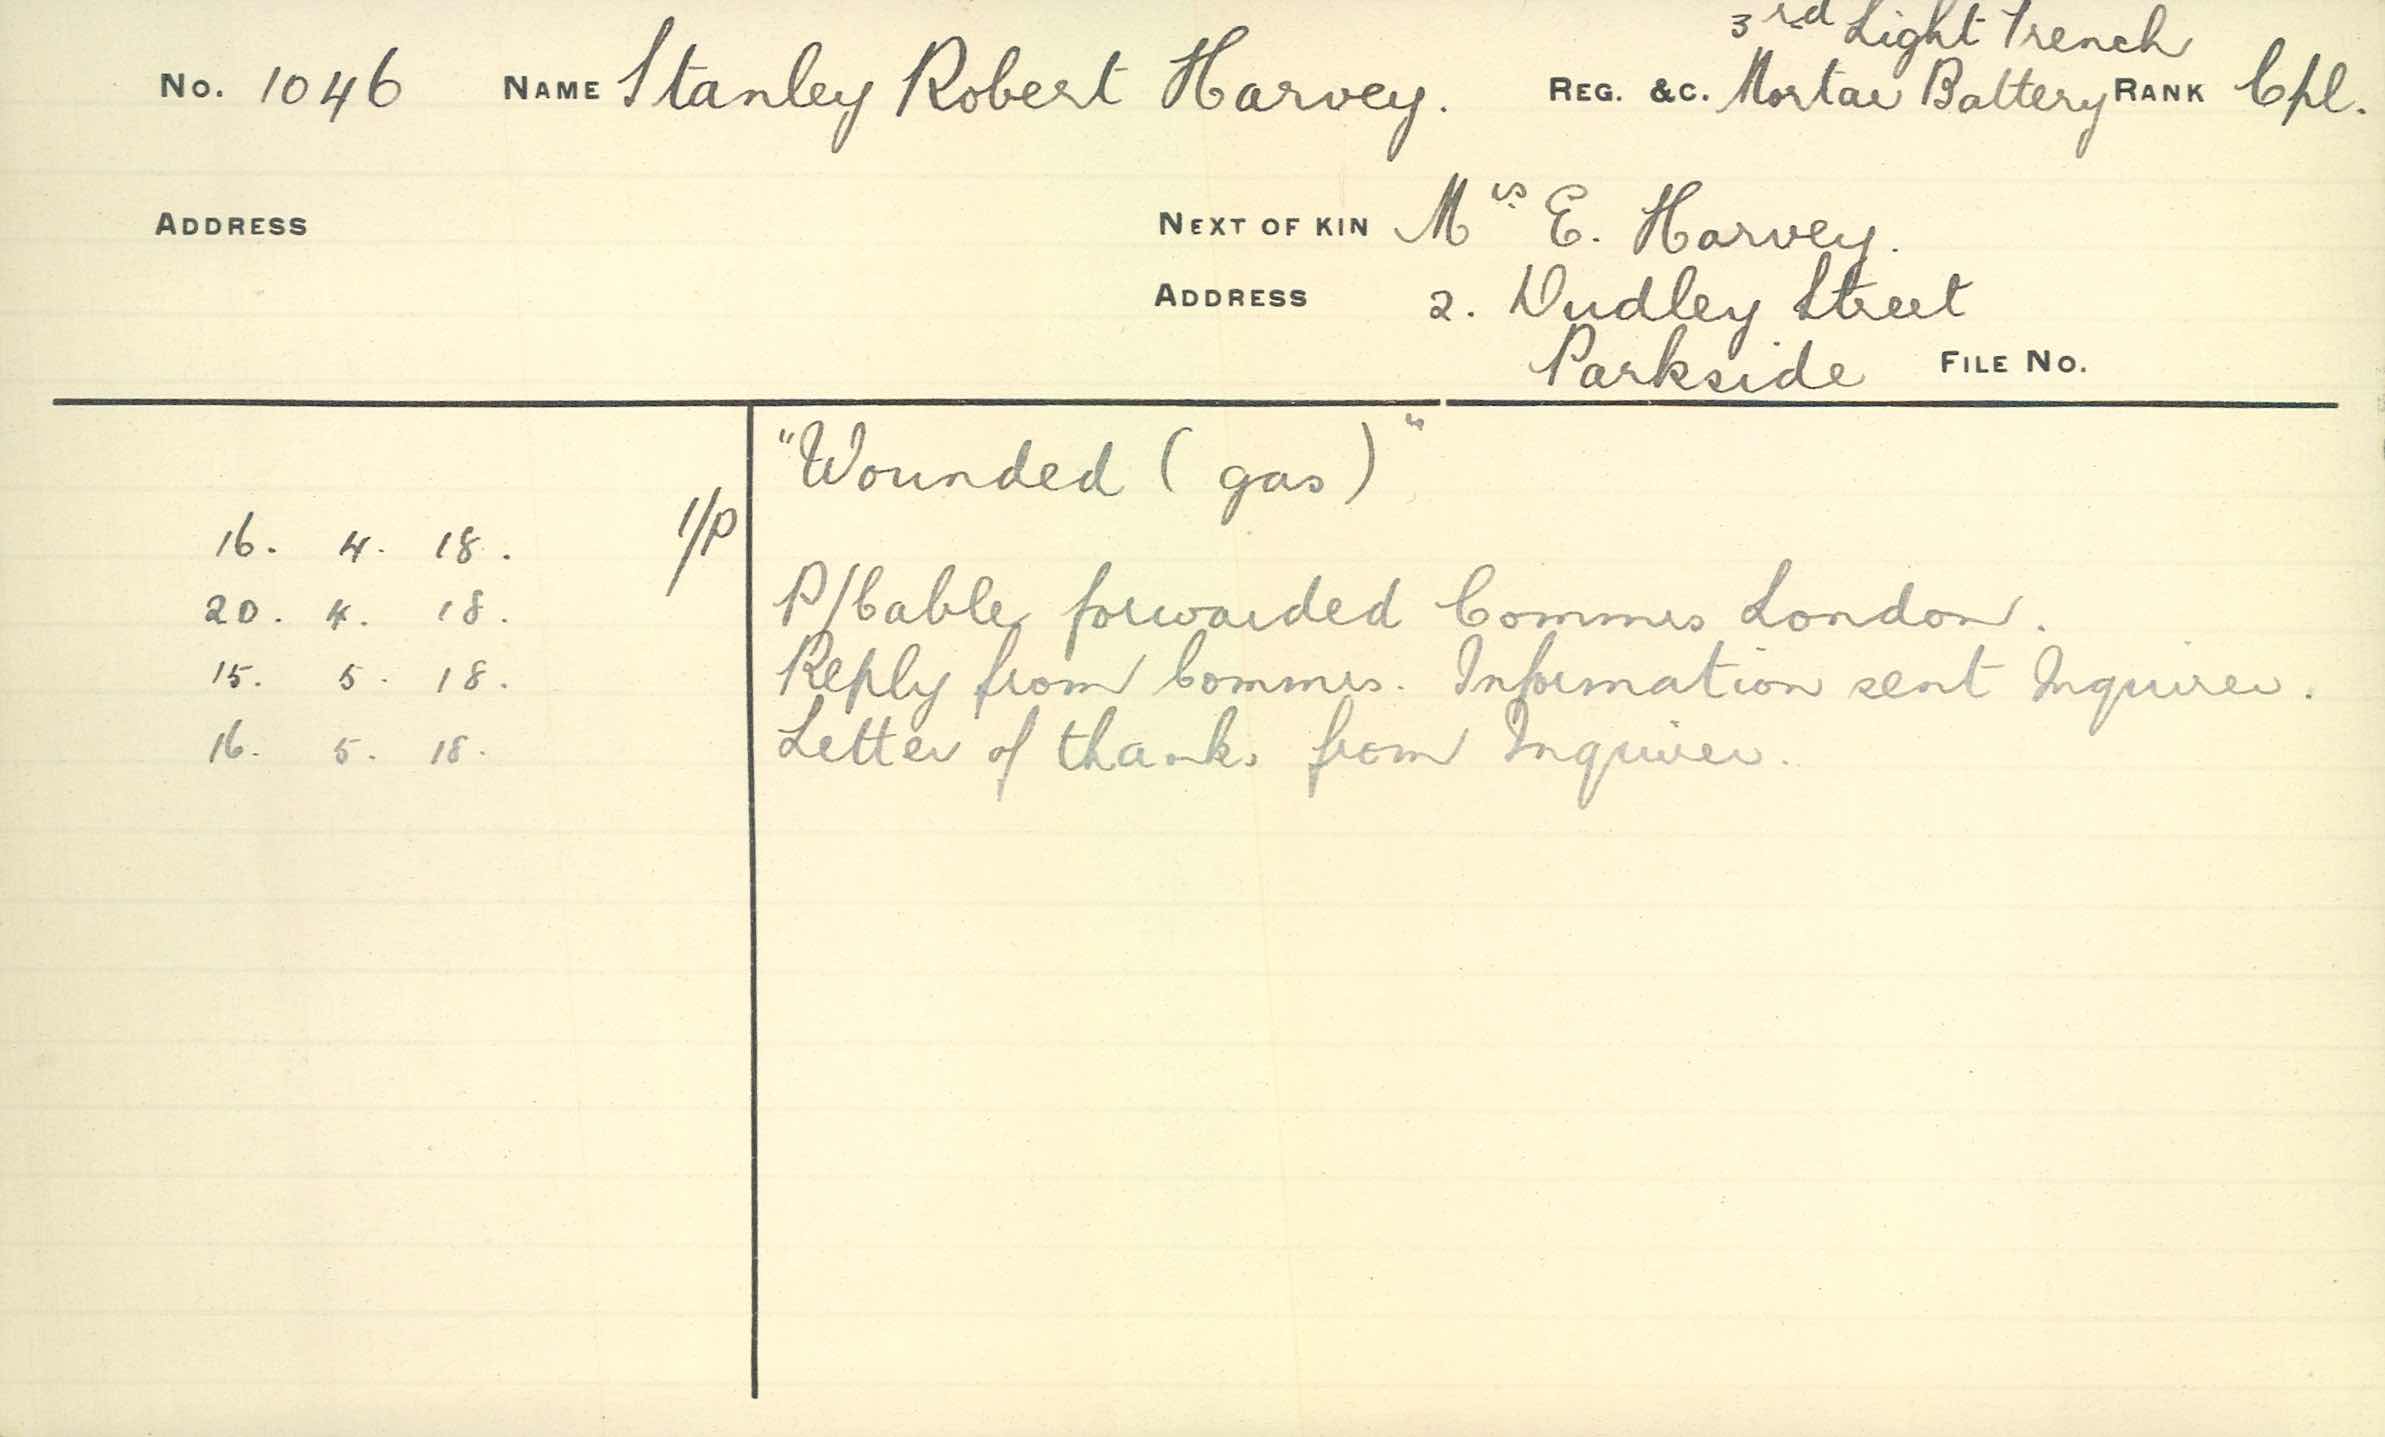 3rd Light Trench
No. 1046 NAME Stanley Robert Harvey. REG. &C. Mortar Battery RANK Cpl.
ADDRESS NEXT OF KIN Mrs E. Harvey.
ADDRESS 2. Dudley Street
Parkside FILE NO.
"Wounded (gas)"
16. 4. 18. 1/P
20. 4. 18. P/Cable forwarded Commrs London.
15. 5. 18. Reply from Commrs. Information sent Inquirer.
16. 5. 18. Letter of thanks from Inquirer.